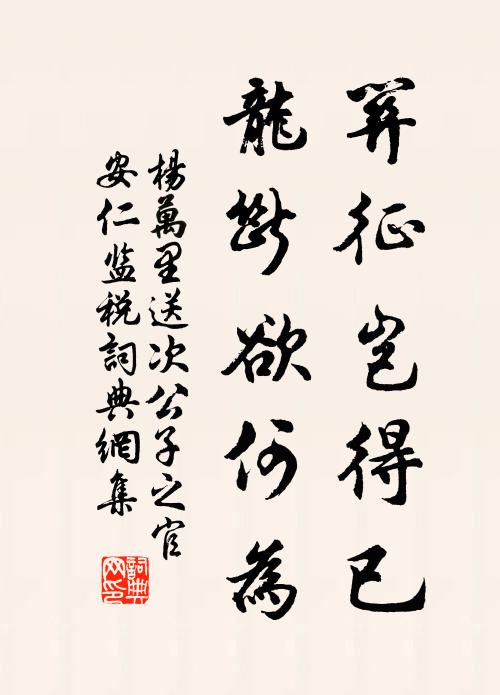 筭征豈得已
龍斷欲何為
楊萬里送次公子之官
安仁监税詞典網集
詞典网印